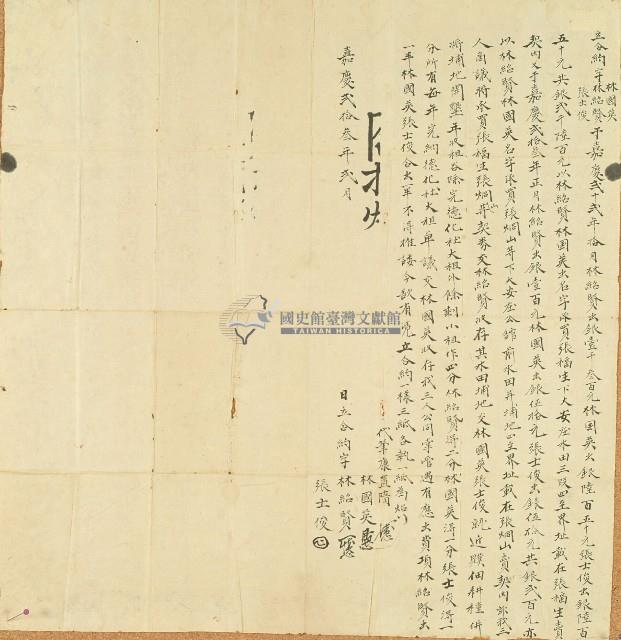 立合約字林紹賢林國英張士俊于嘉慶弍十弍年拾月林紹賢出銀壹千叁百元林国英出銀陸百五十元張士俊出銀陸百
五十元共銀弍千陸百元以林紹賢林国英出名字承買張福生下大安庄水田三段四至界址載在張福生賣
契內又于嘉慶弍拾叁年正月林紹賢出銀壹百元林國英出銀伍拾元張士俊出銀伍拾元共銀弍百元亦
以林紹賢林國英名字承買張炯山等下大安庄公館前水田并埔地四至界址載在張炯山賣契內節我三
人面議將承買張福生張炯山等契券交林紹賢收存其水田埔地交林國英張士俊就近贌佃耕種併
將埔地開墾年收租谷除完德化社大租外餘剩小租作四分林紹賢得二分林國英得一分張士俊得一
分所有每年完納德化社大租単議交林國英收存我三人公同掌管遇有應出費項林紹賢出
一半林國英張士俊合出一半不得推諉今欲有憑立合約一樣三紙各執一紙為炤
代筆康
林國英
日立合約字林紹賢
張士俊
嘉慶弍拾叁年弍月
國史館臺灣文獻館
TAIWAN HISTORICA